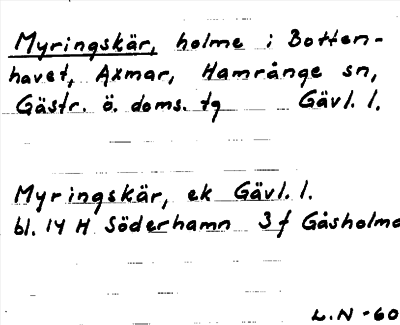 Myringskär, holme i Botten-
havet, Axmar, Hamrånge sn,
Gästr. ö. doms. tg Gävl. l.
Myringskär, ek Gävl. l.
bl. 14 H Söderhamn 3 f Gåsholma
L.N -60